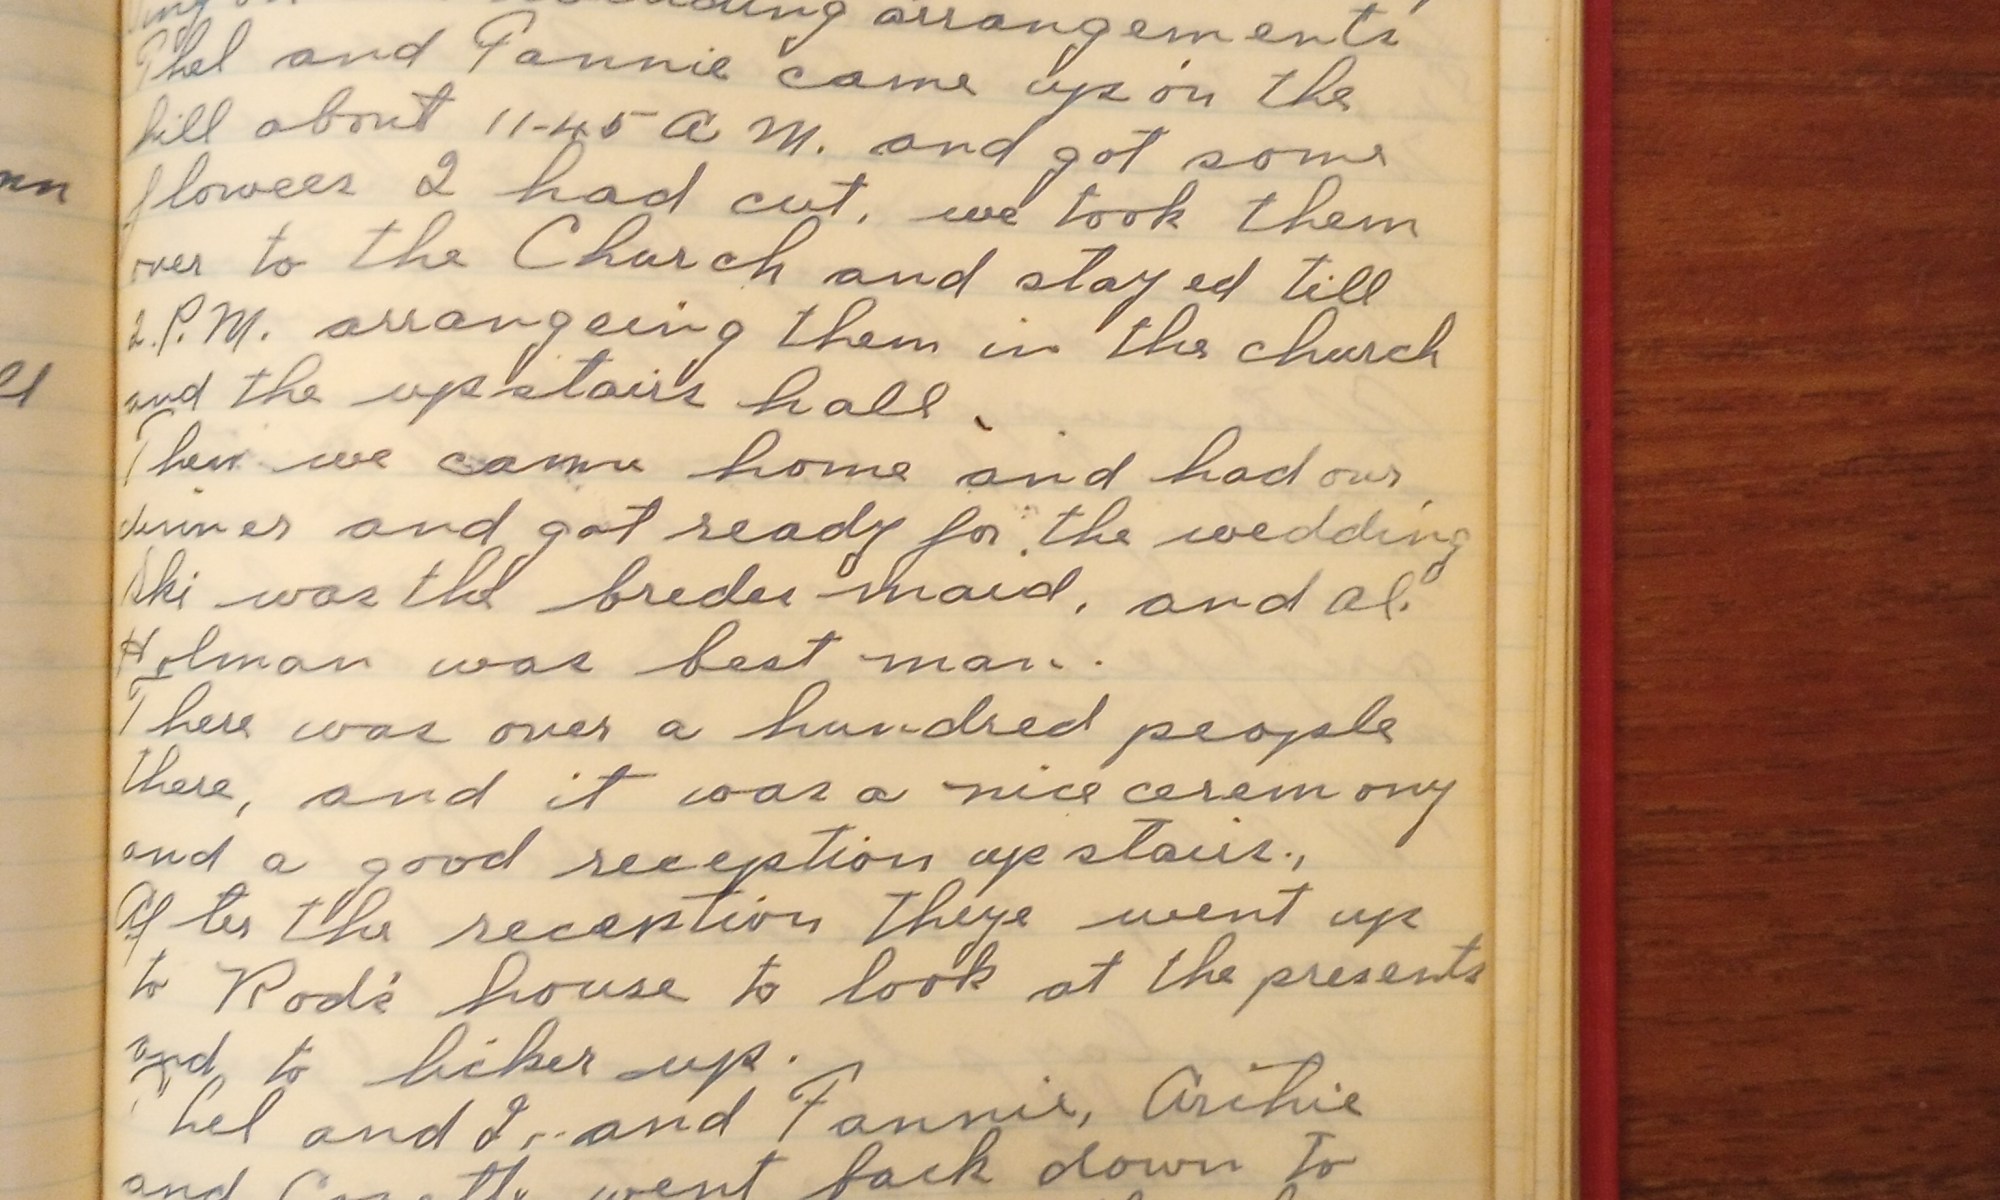 arrangements
Thel and Fannie came up on the
hill about 11-45 A M. and got some
flowers I had cut, we took them
over to the Church and stayed till
2.P.M. arrangeing them in the church
and the upstairs hall.
Then we came home and had our
dinner and got ready for the wedding
Ski was the brides maid, and Al.
Holman was best man.
There was over a hundred people
there, and it was a nice ceremony
and a good reception upstairs.,
After the reception theye went up
to Rod's house to look at the presents
and to licker up.
Thel and I, and Fannie, Archie
and went back down to